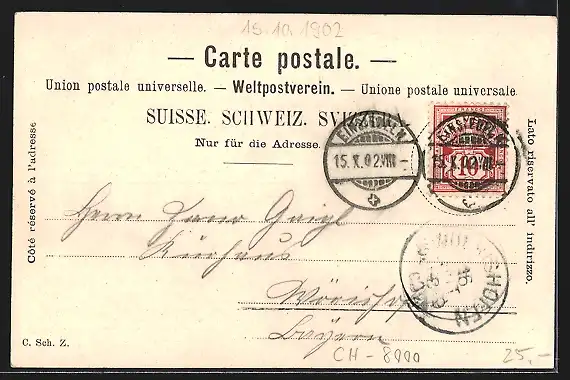 15.10.1902
— Carte postale. —
Union postale universelle. — Weltpostverein. — Unione postale universale.
SUISSE. SCHWEIZ. SVIZZERA.
Nur für die Adresse.
EINSIEDELN
15.X.02.VIII–
EINSIEDELN
15.X.02.VIII–
10
Côté réservé à l'adresse
Lato riservato all' indirizzo.
Herrn
Kurhaus
Wörishofen
Bayern
C. Sch. Z.
CH – 8000
25,–